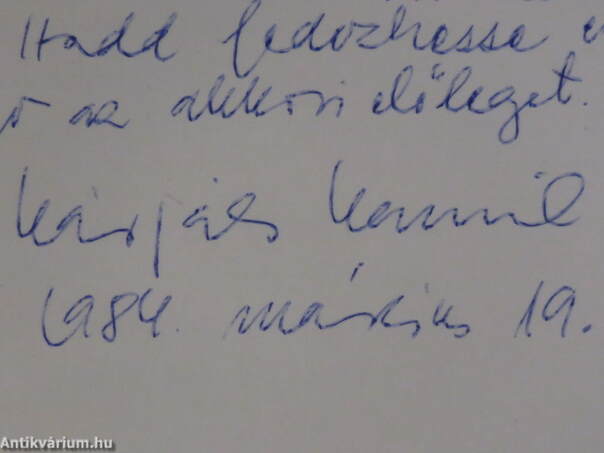 Hadd fedozhesse
ő az akkori előleget.
Kárpáti Kamil
1984. március 19.
Antikvárium.hu